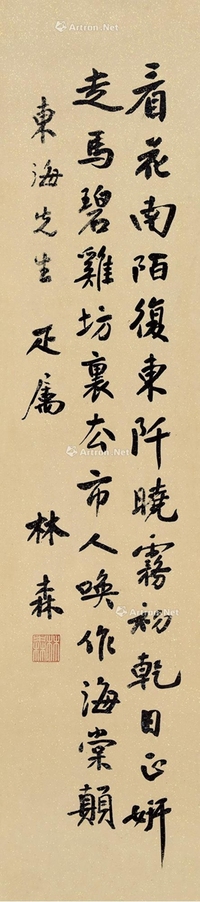 看花南陌復東阡曉霧初乾日正妍
走馬碧雞坊裏去市人喚作海棠顛
東海先生 正屬 林森
Artron.Net
Artron.Net
Artron.Net